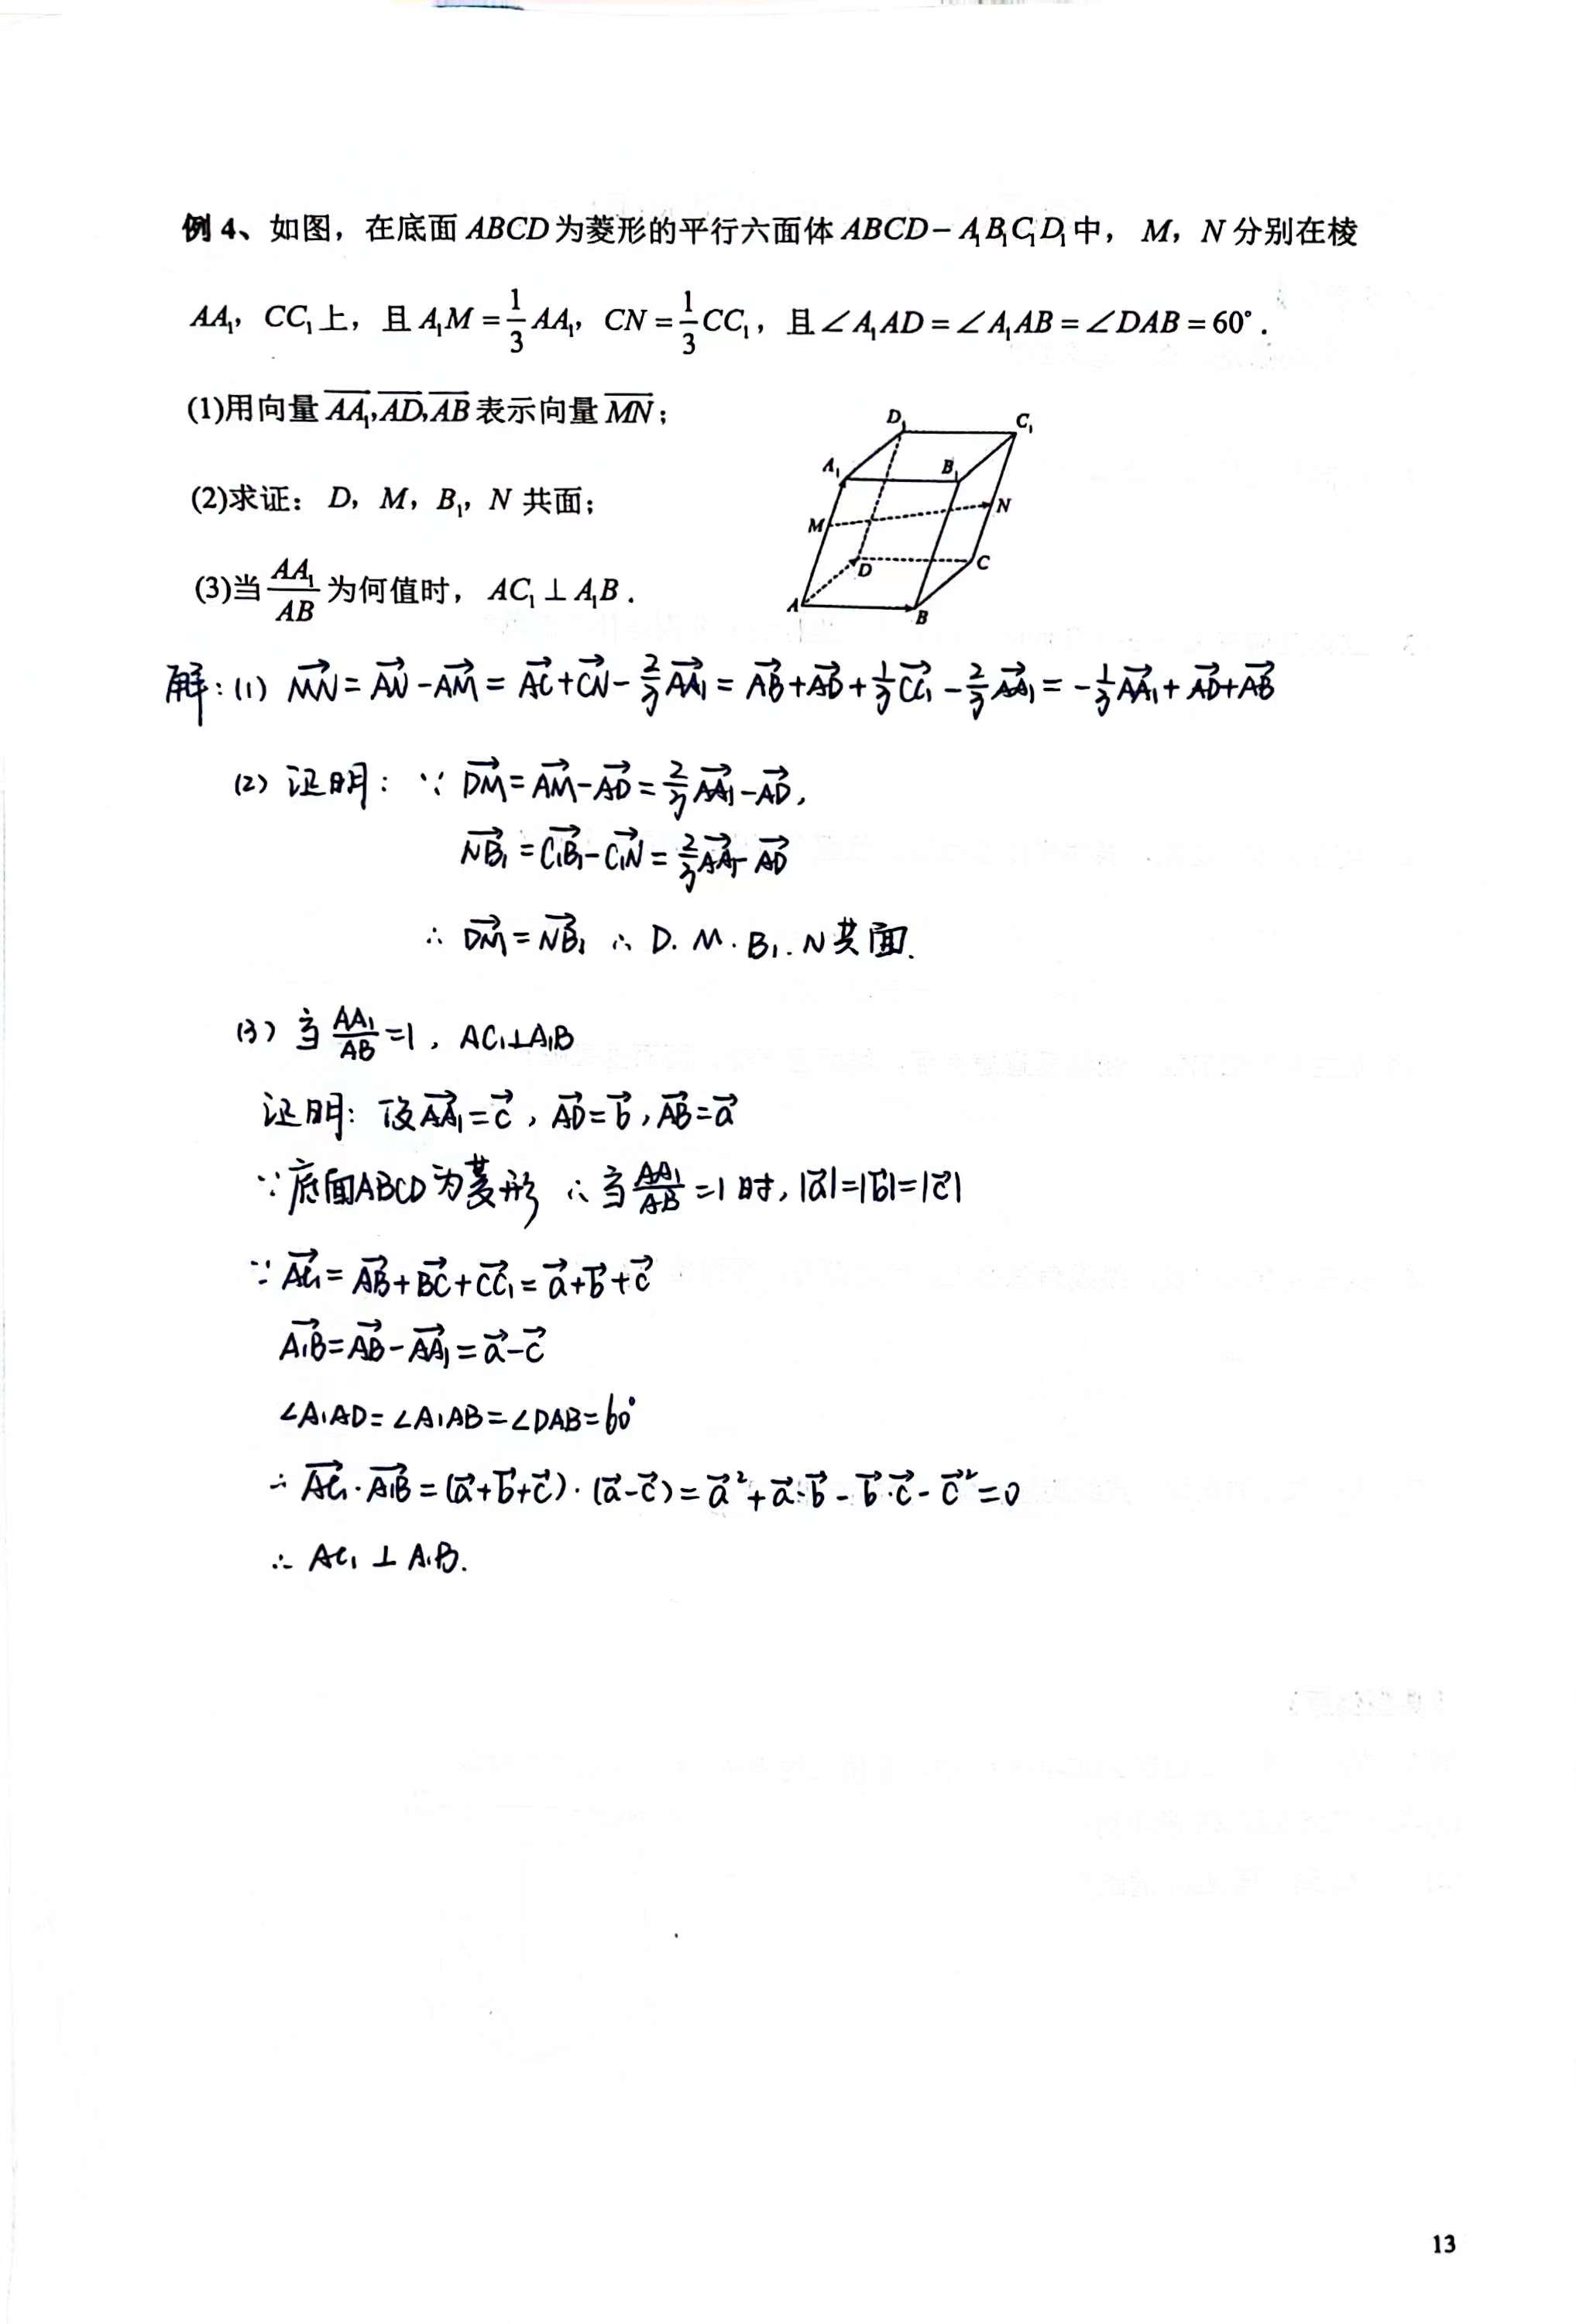 例 4、如图，在底面 ABCD 为菱形的平行六面体 ABCD－A₁B₁C₁D₁ 中， M，N 分别在棱
AA₁，CC₁ 上，且 A₁M = 1/3 AA₁，CN = 1/3 CC₁，且∠A₁AD = ∠A₁AB = ∠DAB = 60°．
(1)用向量 AA₁,AD,AB 表示向量 MN；
(2)求证：D，M，B₁，N 共面；
(3)当 AA₁/AB 为何值时， AC₁ ⊥ A₁B．
D₁ C₁
A₁ B₁
M N
D C
A B
解：(1) MN⃗ = AN⃗ - AM⃗ = AC⃗ + CN⃗ - 2/3 AA₁⃗ = AB⃗ + AD⃗ + 1/3 CC₁⃗ - 2/3 AA₁⃗ = - 1/3 AA₁⃗ + AD⃗ + AB⃗
(2) 证明：∵ DM⃗ = AM⃗ - AD⃗ = 2/3 AA₁⃗ - AD⃗,
NB₁⃗ = C₁B₁⃗ - C₁N⃗ = 2/3 AA₁⃗ - AD⃗
∴ DM⃗ = NB₁⃗ ∴ D. M. B₁. N共面.
(3) 当 AA₁/AB =1, AC₁⊥A₁B
证明：设 AA₁⃗ = c⃗, AD⃗ = b⃗, AB⃗ = a⃗
∵底面ABCD为菱形 ∴当 AA₁/AB =1时, |a⃗|=|b⃗|=|c⃗|
∵ AC₁⃗ = AB⃗ + BC⃗ + CC₁⃗ = a⃗ + b⃗ + c⃗
A₁B⃗ = AB⃗ - AA₁⃗ = a⃗ - c⃗
∠A₁AD=∠A₁AB=∠DAB=60°
∴ AC₁⃗ · A₁B⃗ = (a⃗+b⃗+c⃗)·(a⃗-c⃗) = a⃗² + a⃗·b⃗ - b⃗·c⃗ - c⃗² = 0
∴ AC₁ ⊥ A₁B.
13